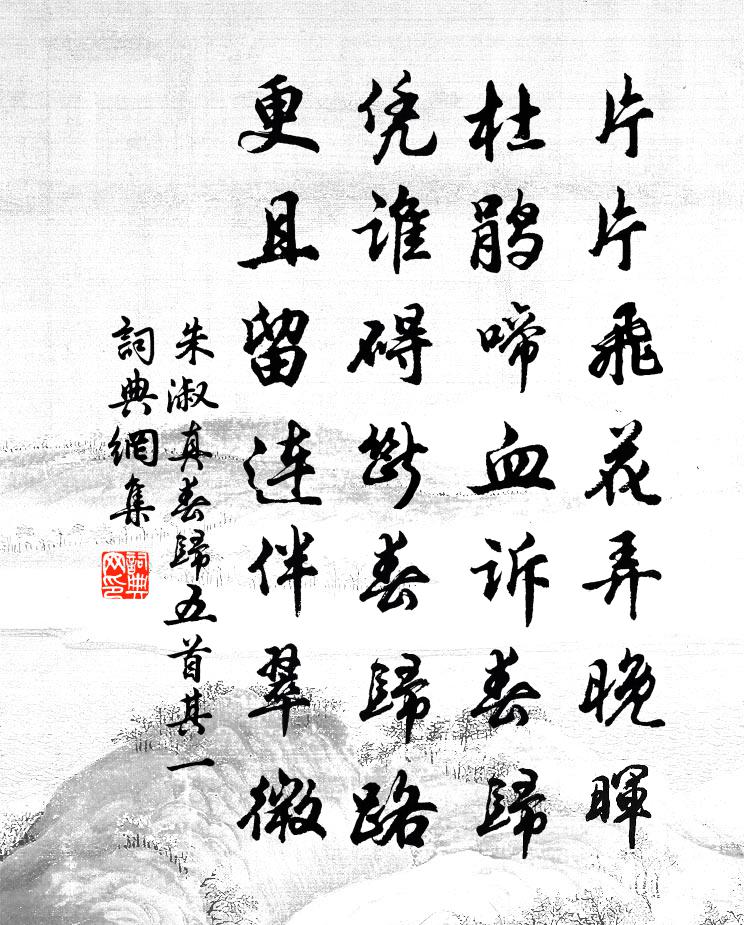 片片飛花弄晚暉
杜鹃啼血诉春歸
凭谁碍斷春歸路
更且留連伴翠微
朱淑真春歸五首其一
詞典網集
詞典
网印